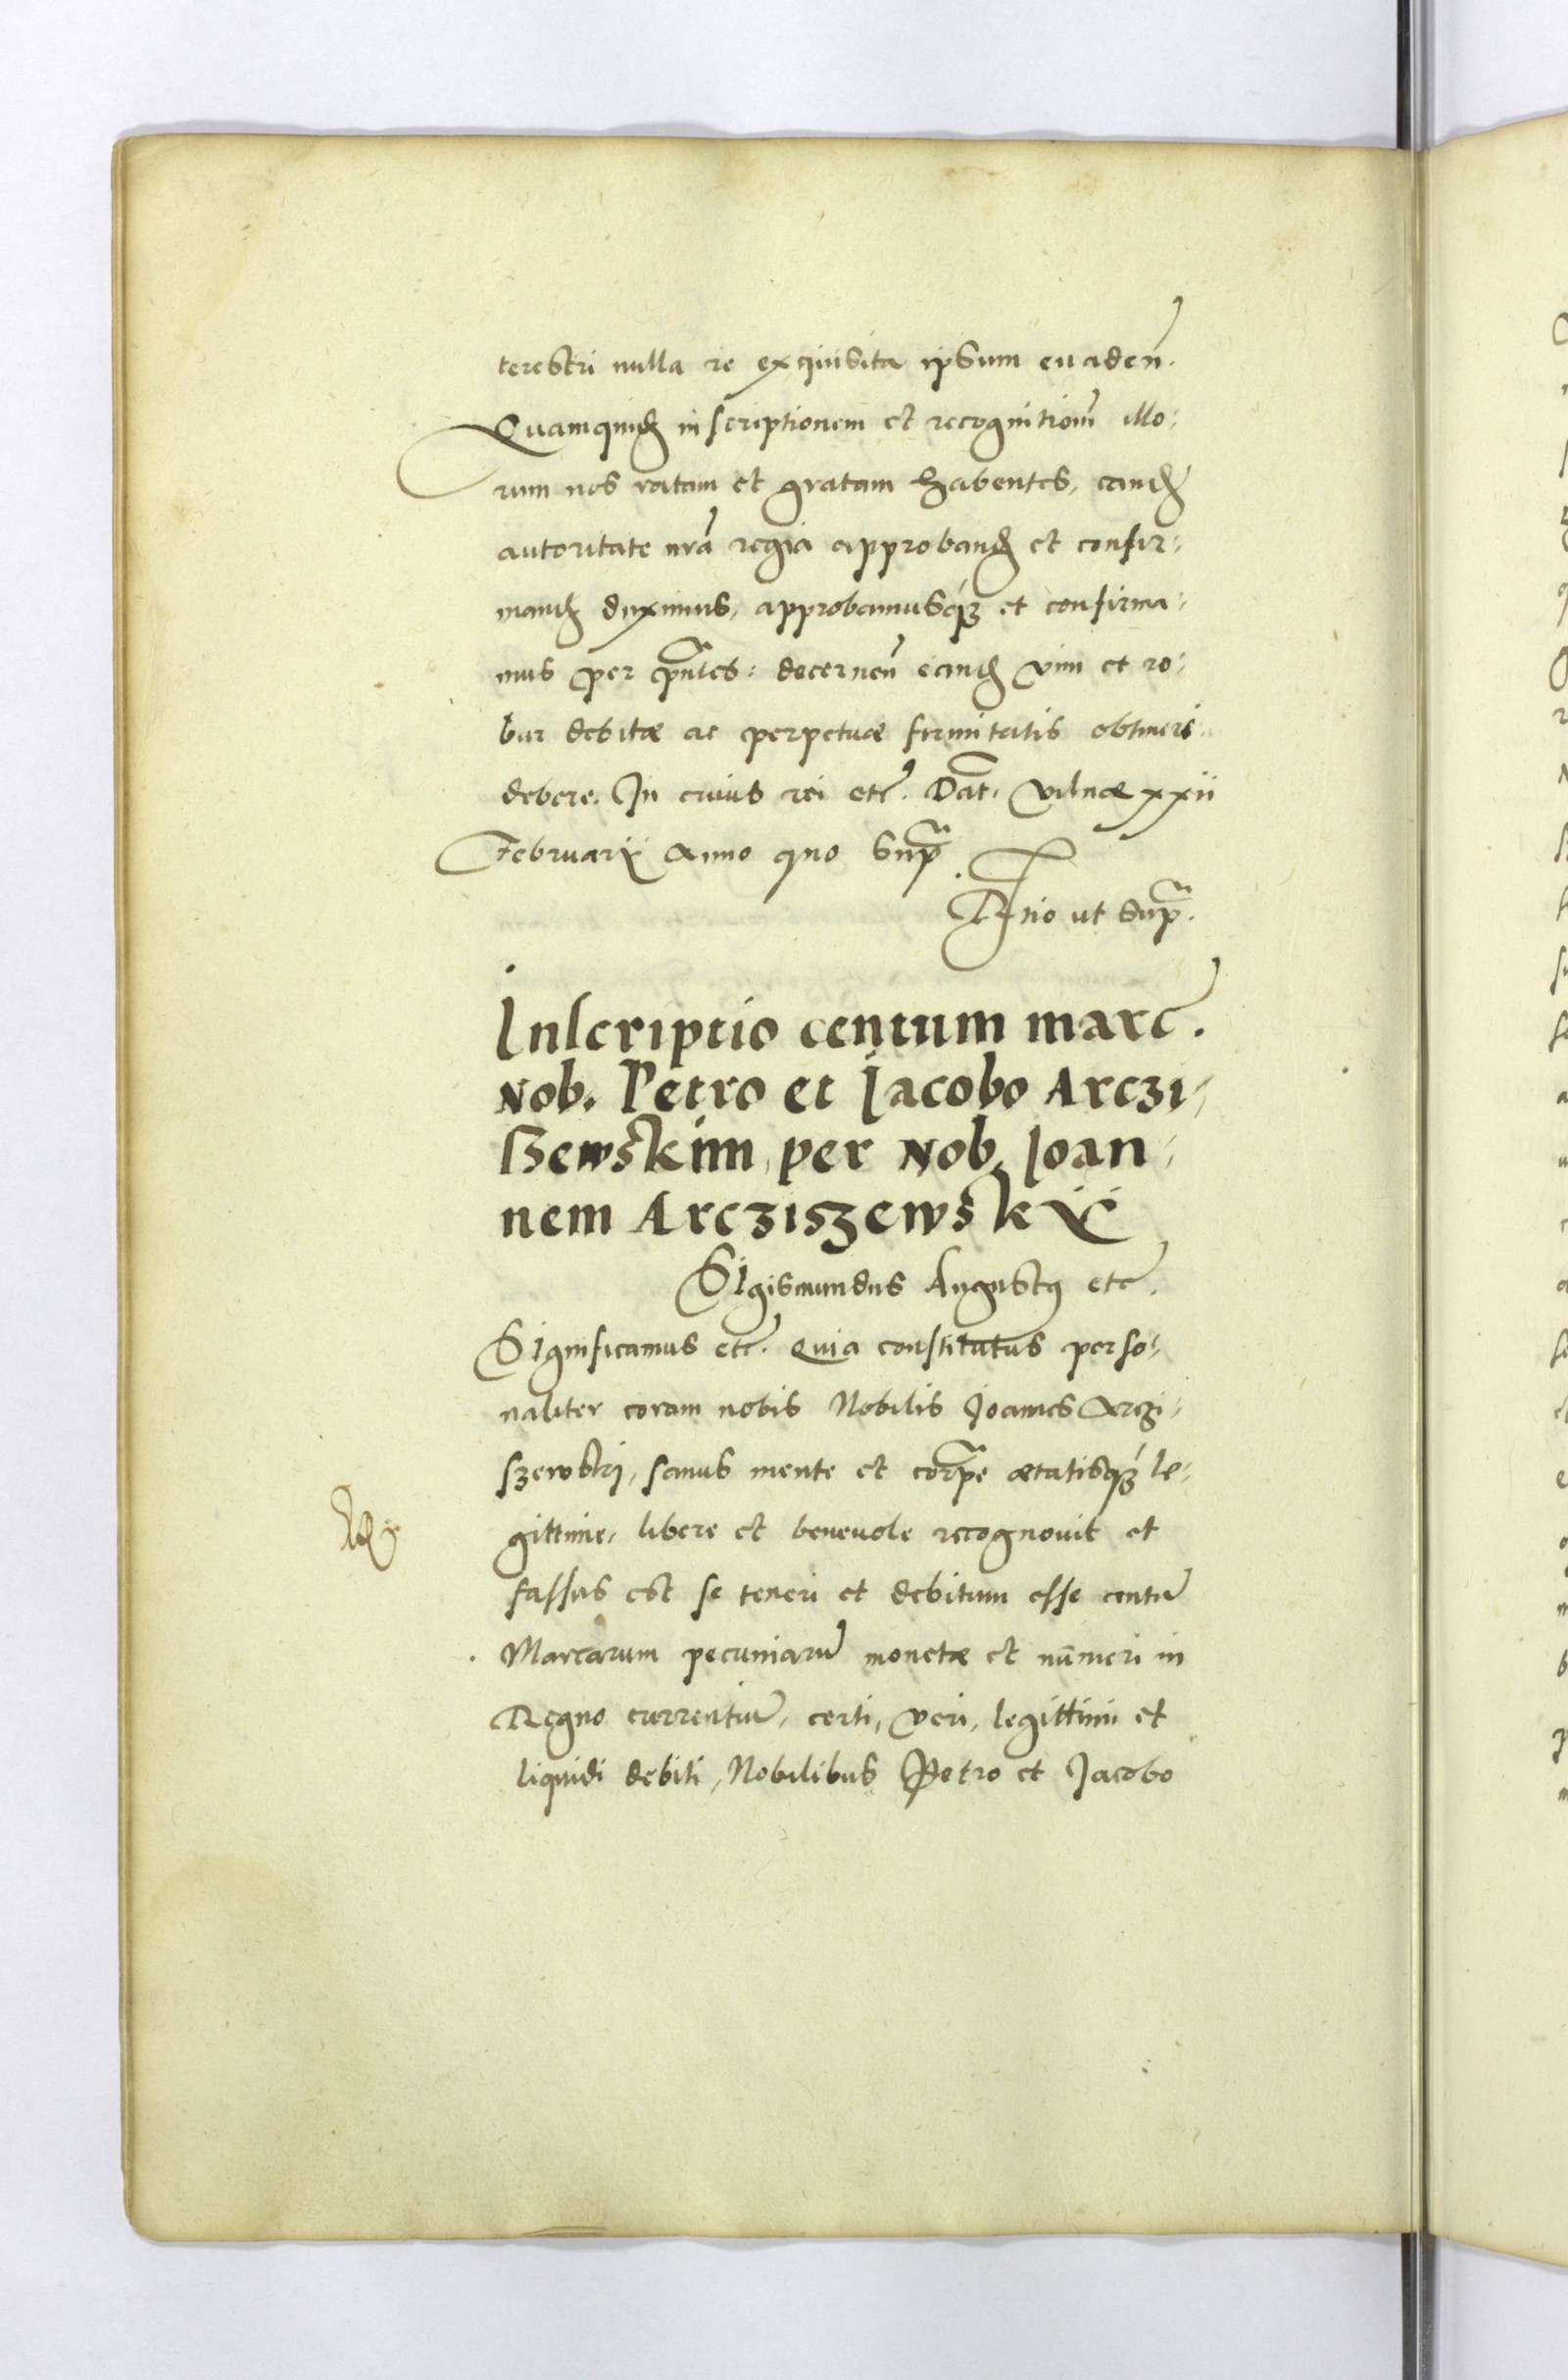 terestri nulla re exquisita ipsum euaden̄.
Quamquid inscriptionem et recognitiom̄ illo:
rum nos ratam et gratam habentes, eand
autoritate nrā regia approband et confir:
mand duximus, approbamusq; et confirma:
mus per pn̄tes: decernen̄ eand vim et ro:
bur debitæ ac perpetuæ firmitatis obtineri
debere. In cuius rei etc̄. Dat. Vilnæ xxii
Februarij Anno quo sup̄
R̄tio ut sup̄.
Inscriptio centum marc̄.
Nob. Petro et Jacobo Arczi-
szewskim per Nob. Joan-
nem Arcziszewskij
Sigismundus Augustus etc̄.
Significamus etc̄. Quia constitutus perso:
naliter coram nobis Nobilis Joannes Arczi-
szewski, sanus mente et corp̄e ætatisq; le:
gittime, libere et beneuole recognouit et
fassus est se teneri et debitum esse centū
Marcarum pecuniarū monetæ et nūmeri in
Regno currentiū, certi, veri, legittimi et
liquidi debiti, Nobilibus Petro et Jacobo